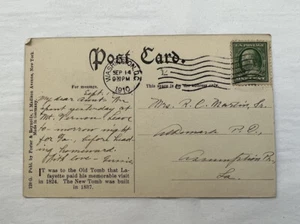 Post Card.
For message.
This space is for address only
WASHINGTON, D.C.
SEP 14
9 30 PM
1910
Sept.
My dear Aunt. We
spent yesterday at
Mt. Vernon. Leave
to-morrow night
for Ga. before heading
homeward.
With love -
Mrs. R. C. Martin, Sr.
Albemarle P.O.
Assumption Pa.
La.
IT was to the Old Tomb that La-
fayette paid his memorable visit
in 1824. The New Tomb was built
in 1837.
Publ. by Foster & Reynolds, 1 Madison Avenue, New York